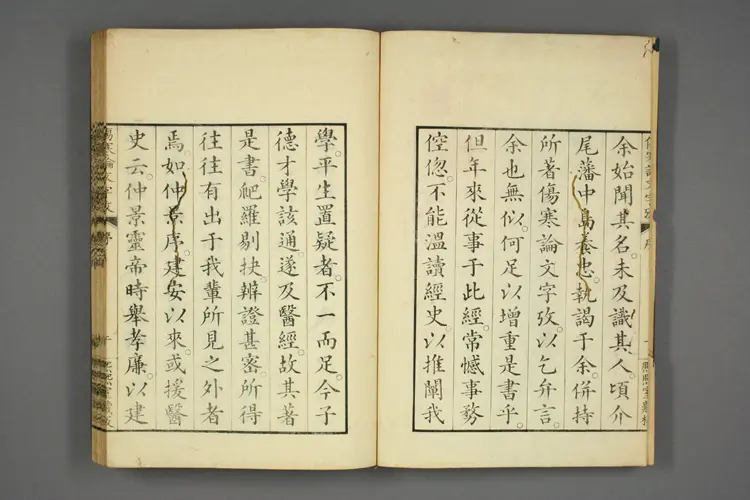 傷寒論文字攷 序 一
余始聞其名。未及識其人。頃介
尾藩中島養忠。執謁于余。併持
所著傷寒論文字攷。以乞弁言。
余也無似。何足以增重是書乎。
但年來從事于此經。常憾事務
倥偬。不能溫讀經史以推闡我
學。平生置疑者。不一而足。今子
德才學該通。遂及醫經。故其著
是書。爬羅剔抉。辨證甚審。所得
往往有出于我輩所見之外者
焉。如仲景序。建安以來。或援醫
史云。仲景靈帝時舉孝廉。以建